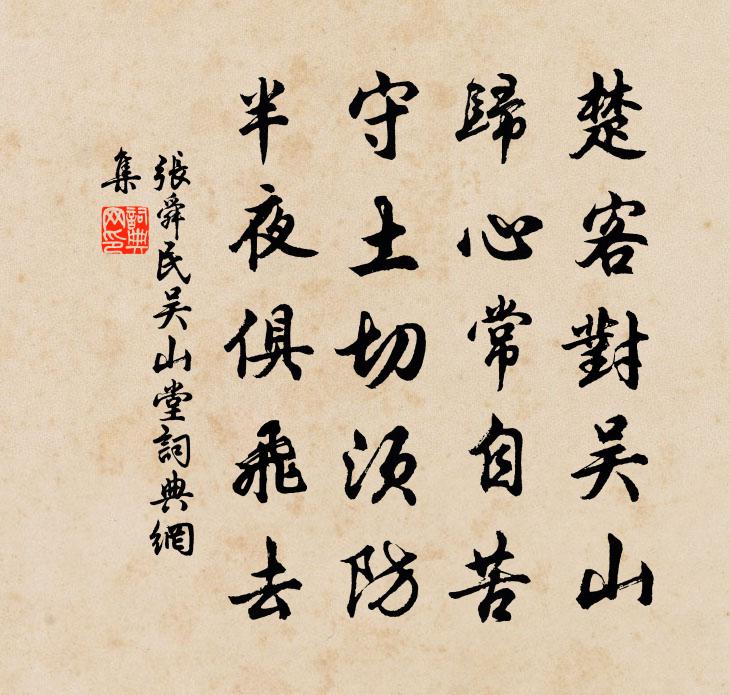 楚客對吴山
歸心常自苦
守土切須防
半夜俱飛去
張舜民吴山堂詞典網
集
詞典網印